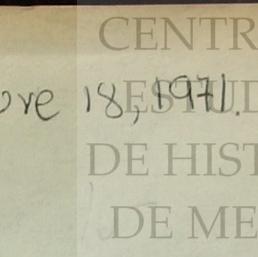 CENTR
ore 18, 1971.
ESTUD
DE HIST
DE ME